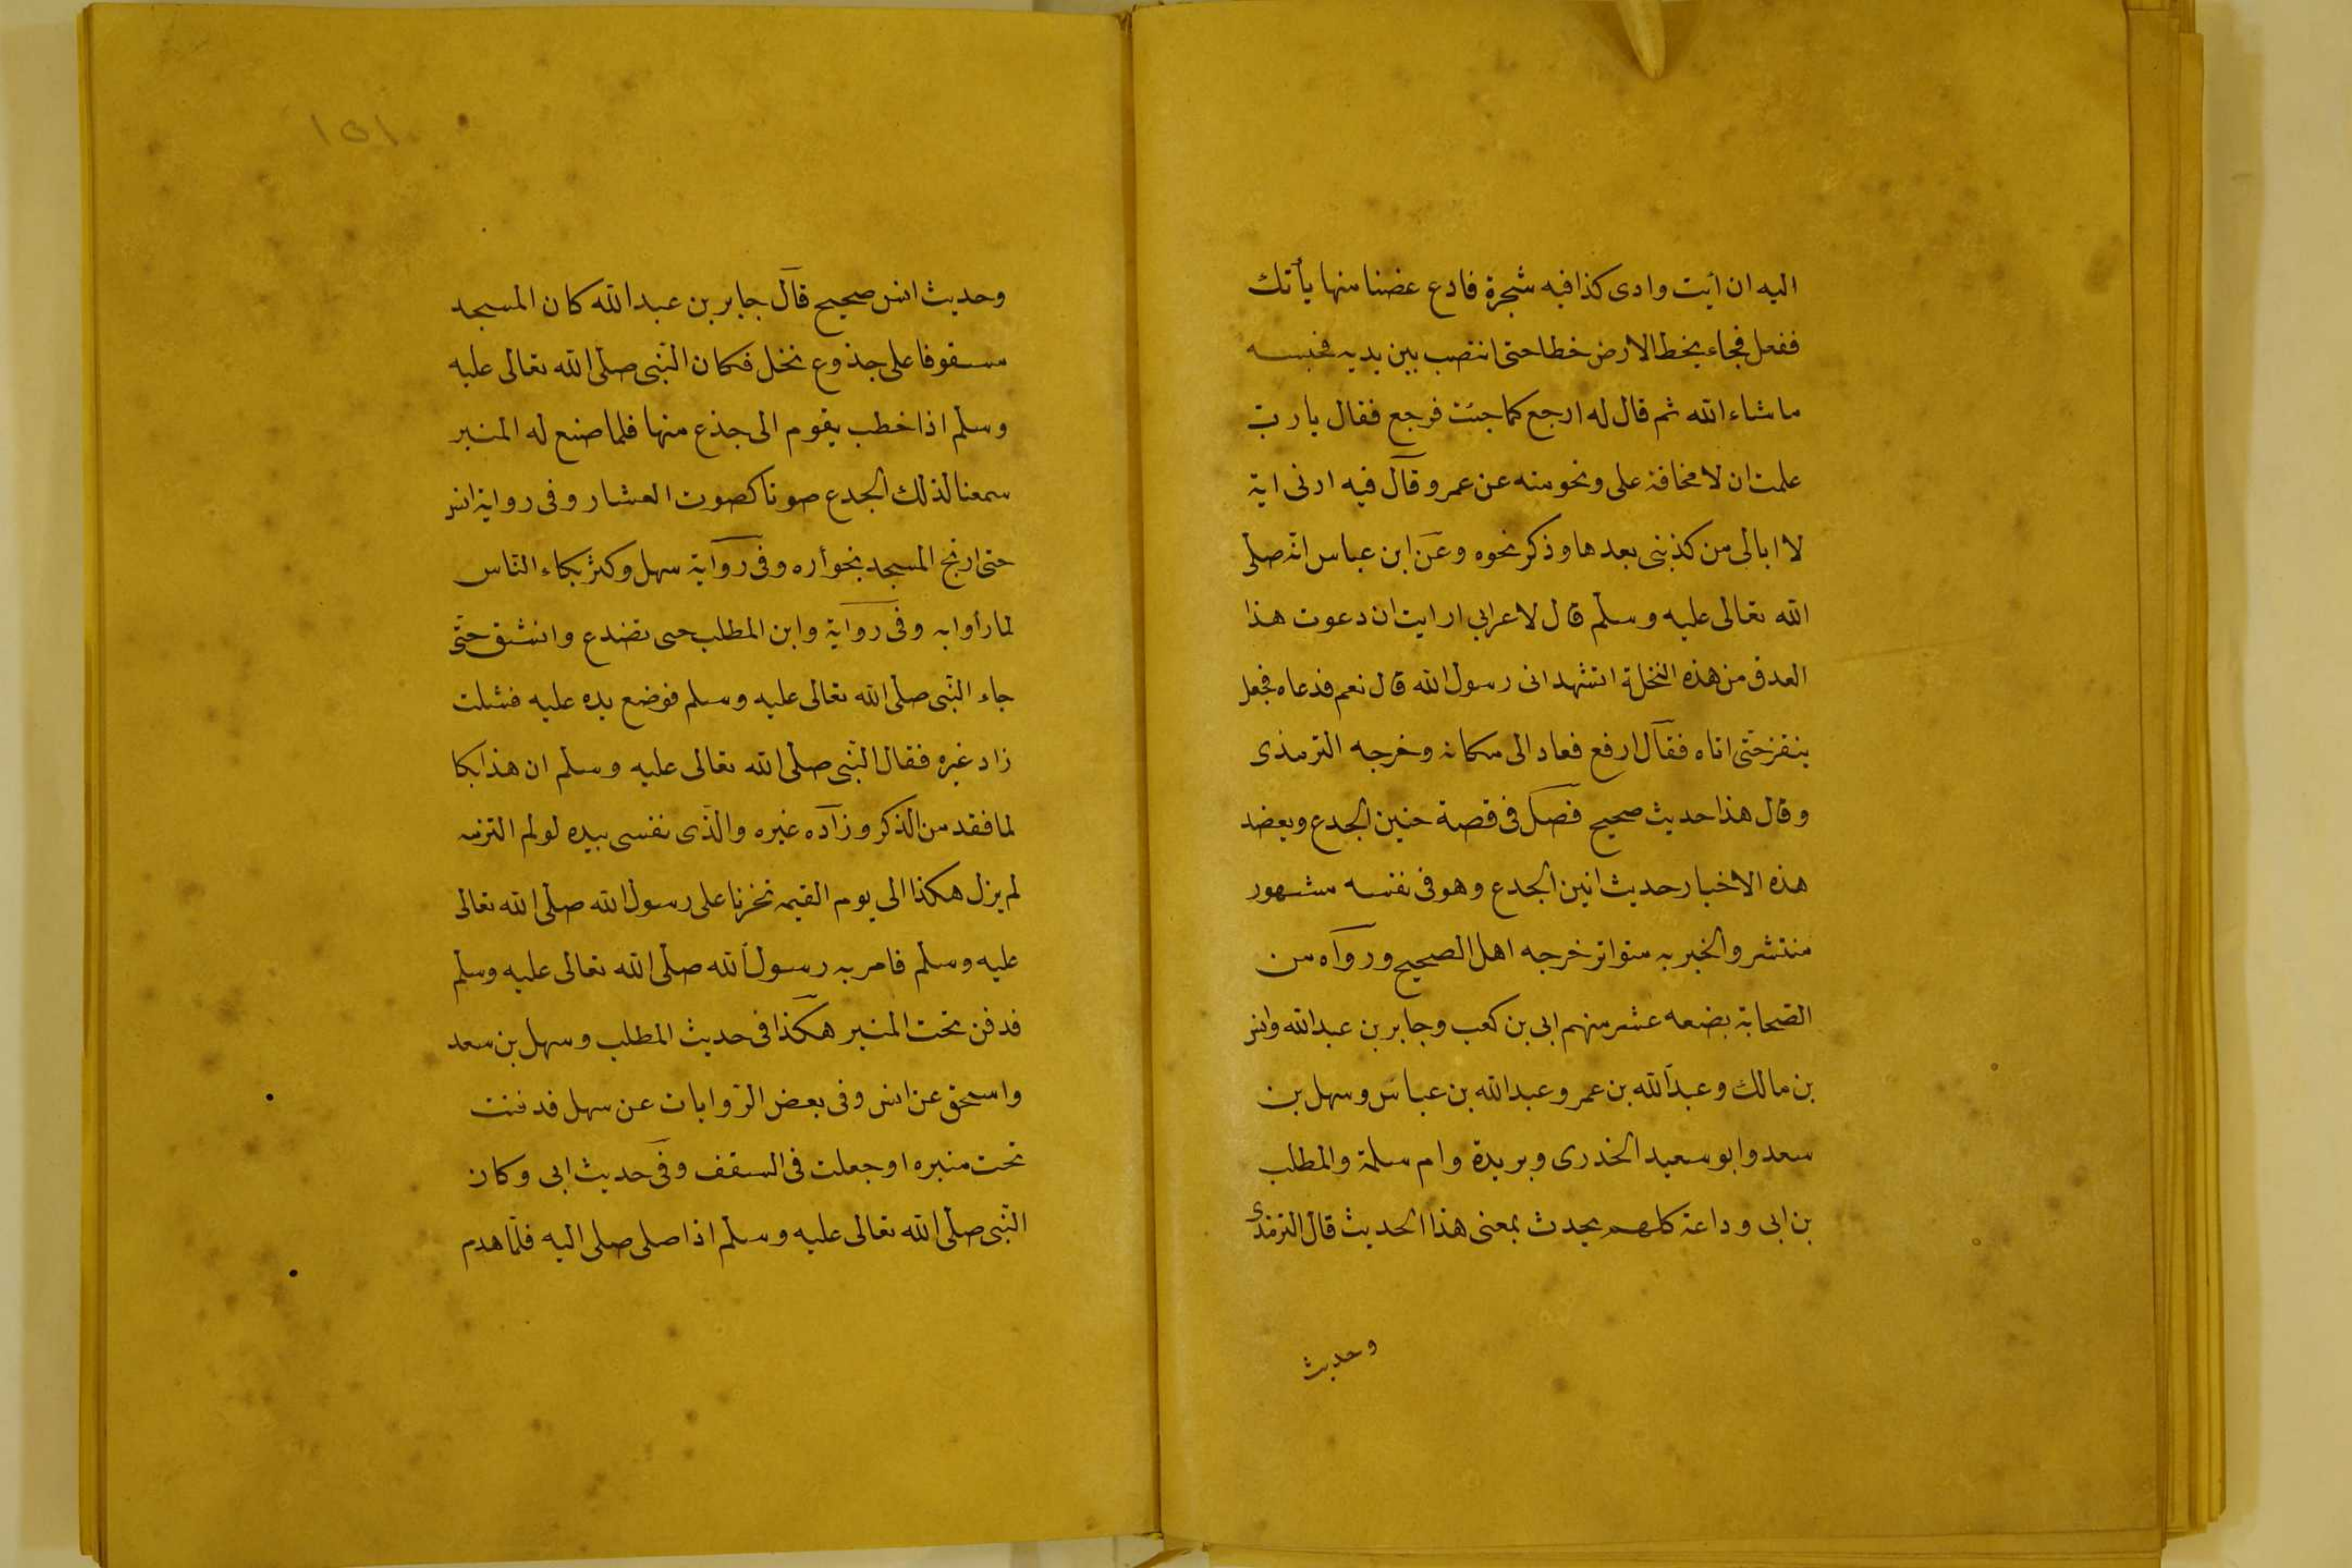 اليه ان أيت وادى كذا فيه شجرة فادع غضنا منها يأتك
ففعل فجاء يخط الارض خطا حتى انتصب بين يديه فحبسه
ما شاء الله ثم قال له ارجع كما جئت فرجع فقال يا ربّ
علمت ان لا مخافة على ونحو منه عن عمر وقال فيه ارنى اية
لا ابالى من كذبنى بعدها وذكر نحوه وعن ابن عباس انّه صلى
الله تعالى عليه وسلم قال لاعرابي ارايت ان دعوت هذا
العدق من هذه النخلة اتشهد انى رسول الله قال نعم فدعاه فجعل
ينقز حتى اتاه فقال ارفع فعاد الى مكانه وخرجه الترمذى
وقال هذا حديث صحيح فصل فى قصة حنين الجدع ويعضد
هذه الاخبار حديث انين الجدع وهو فى نفسه مشهور
منتشر والخبر به متواتر خرجه اهل الصحيح ورواه من
الصّحابة بضعه عشر منهم ابى بن كعب وجابر بن عبد الله وانس
بن مالك وعبد الله بن عمر وعبد الله بن عباس وسهل بن
سعد وابو سعيد الخذرى وبريدة وام سلمة والمطلب
بن ابى وداعة كلهم يحدث بمعنى هذا الحديث قال الترمذى
وحديث
١٥١
وحديث انس صحيح قال جابر بن عبد الله كان المسجد
مسقوفا على جذوع نخل فكان النّبى صلى الله تعالى عليه
وسلم اذا خطب يقوم الى جذع منها فلما صنع له المنبر
سمعنا لذلك الجدع صوتا كصوت العشار وفى رواية انس
حتى ارتج المسجد بخوأره وفى رواية سهل وكثر بكاء النّاس
لما رأوا به وفى رواية وابن المطلب حتى تضدع وانشق حتّى
جاء النّبى صلى الله تعالى عليه وسلم فوضع يده عليه فسكت
زاد غيره فقال النّبى صلى الله تعالى عليه وسلم ان هذا بكا
لما فقد من الذكر وزاده غيره والذّى نفسى بيده لو لم التزمه
لم يزل هكذا الى يوم القيمه تحزنا على رسول الله صلى الله تعالى
عليه وسلم فامر به رسول الله صلى الله تعالى عليه وسلم
فدفن تحت المنبر هكذا فى حديث المطلب وسهل بن سعد
واسحق عن انس وفى بعض الرّوايات عن سهل فدفنت
تحت منبره اوجعلت فى السقف وفى حديث ابى وكان
النّبى صلى الله تعالى عليه وسلم اذا صلى صلى اليه فلمّا هدم